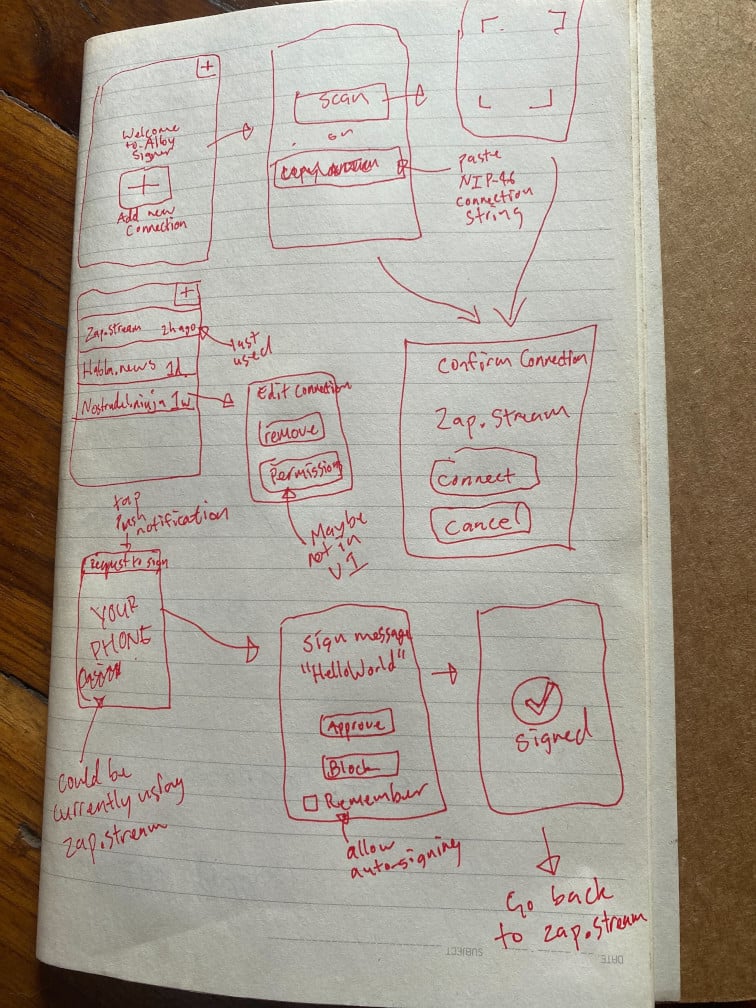 +
Welcome
to Alby
Signer
+
Add new
Connection
Scan
or
paste
NIP-46
connection
string
+
Zap.stream 2h ago
Habla.news 1d
Nostrudel.ninja 1w
last
used
Edit Connection
remove
Permission
Maybe
not in
V1
Confirm Connection
Zap.Stream
Connect
Cancel
tap
push
notification
Request to sign
YOUR
PHONE
could be
currently using
zap.stream
Sign message
"HelloWorld"
Approve
Block
Remember
allow
auto-signing
Signed
Go back
to zap.stream
SUBJECT
DATE